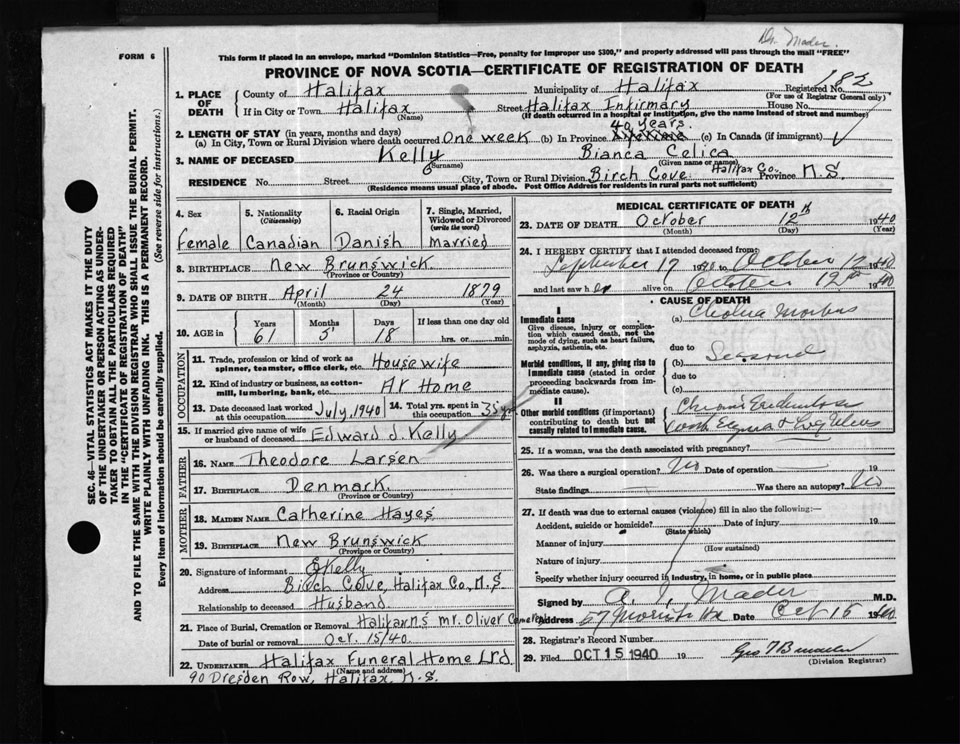 Dr. Mader.
FORM 6
This form if placed in an envelope, marked "Dominion Statistics—Free, penalty for improper use $300," and properly addressed will pass through the mail "FREE"
PROVINCE OF NOVA SCOTIA—CERTIFICATE OF REGISTRATION OF DEATH
182
1. PLACE OF DEATH
County of Halifax Municipality of Halifax Registered No.
(For use of Registrar General only)
If in City or Town Halifax Street Halifax Infirmary House No.
(Name) (If death occurred in a hospital or institution, give the name instead of street and number)
2. LENGTH OF STAY (in years, months and days) 40 years.
(a) In City, Town or Rural Division where death occurred One week (b) In Province (c) In Canada (if immigrant)
3. NAME OF DECEASED Kelly Bianca Celica
(Surname) (Given name or names)
RESIDENCE No. Street City, Town or Rural Division Birch Cove Halifax Co. Province N.S.
(Residence means usual place of abode. Post Office Address for residents in rural parts not sufficient)
4. Sex
Female
5. Nationality
(Citizenship)
Canadian
6. Racial Origin
Danish
7. Single, Married, Widowed or Divorced
(write the word)
Married
8. BIRTHPLACE New Brunswick.
(Province or Country)
9. DATE OF BIRTH April 24 1879
(Month) (Day) (Year)
10. AGE in
Years Months Days If less than one day old
61 5 18 hrs. or min.
OCCUPATION
11. Trade, profession or kind of work as spinner, teamster, office clerk, etc. Housewife
12. Kind of industry or business, as cotton-mill, lumbering, bank, etc. At Home
13. Date deceased last worked at this occupation July, 1940 14. Total yrs. spent in this occupation 35 yrs
15. If married give name of wife or husband of deceased Edward J. Kelly
FATHER
16. NAME Theodore Larsen
17. BIRTHPLACE Denmark.
(Province or Country)
MOTHER
18. MAIDEN NAME Catherine Hayes
19. BIRTHPLACE New Brunswick
(Province or Country)
20. Signature of informant Kelly
Address Birch Cove, Halifax Co., N.S.
Relationship to deceased Husband
21. Place of Burial, Cremation or Removal Halifax NS Mt. Oliver Cemetery
Date of burial or removal Oct. 15/40.
22. UNDERTAKER Halifax Funeral Home Ltd
(Name and address)
90 Dresden Row, Halifax, N.S.
MEDICAL CERTIFICATE OF DEATH
23. DATE OF DEATH October 12th 1940
(Month) (Day) (Year)
24. I HEREBY CERTIFY that I attended deceased from:
September 17 1940 to October 12 1940
and last saw her alive on October 12th 1940
CAUSE OF DEATH
I
Immediate cause
Give disease, injury or complication which caused death, not the mode of dying, such as heart failure, asphyxia, asthenia, etc.
(a) Cholera Morbus
due to
Morbid conditions, if any, giving rise to immediate cause (stated in order proceeding backwards from immediate cause).
(b)
due to
(c)
II
Other morbid conditions (if important) contributing to death but not causally related to immediate cause.
25. If a woman, was the death associated with pregnancy?
26. Was there a surgical operation? No Date of operation 19
State findings Was there an autopsy? No
27. If death was due to external causes (violence) fill in also the following:—
Accident, suicide or homicide? Date of injury 19
(State which)
Manner of injury
(How sustained)
Nature of injury
Specify whether injury occurred in industry, in home, or in public place
Signed by A. I. Mader M.D.
Address 67 Morris Hx Date Oct 15 1940
28. Registrar's Record Number
29. Filed OCT 15 1940 19
(Division Registrar)
SEC. 46—VITAL STATISTICS ACT MAKES IT THE DUTY
OF THE UNDERTAKER OR PERSON ACTING AS UNDER-
TAKER TO OBTAIN ALL THE PARTICULARS REQUIRED
IN THE "CERTIFICATE OF REGISTRATION OF DEATH"
AND TO FILE THE SAME WITH THE DIVISION REGISTRAR WHO SHALL ISSUE THE BURIAL PERMIT.
WRITE PLAINLY WITH UNFADING INK. THIS IS A PERMANENT RECORD.
Every item of information should be carefully supplied. (See reverse side for instructions.)